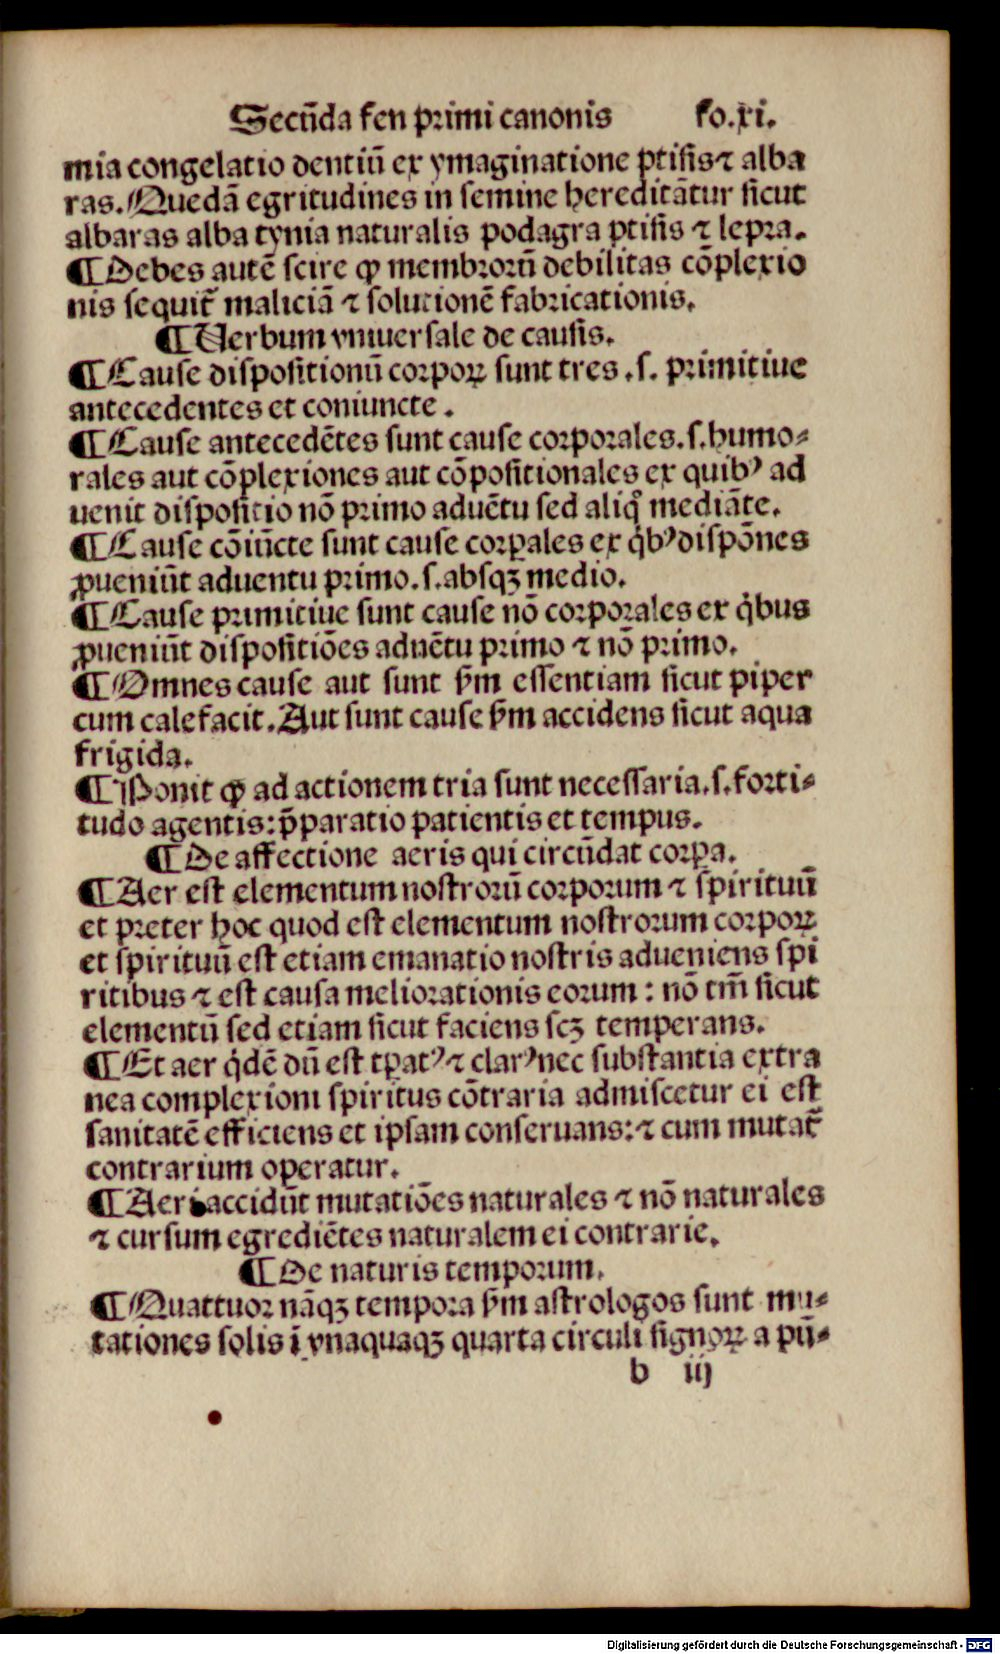 Secūda fen primi canonis fo.xi.
mia congelatio dentiū ex ymaginatione ptisis ⁊ alba
ras. Quedā egritudines in semine hereditātur sicut
albaras alba tynia naturalis podagra ptisis ⁊ lepra.
¶ Debes autē scire ꝙ membrorū debilitas cōplexio
nis sequit̄ maliciā ⁊ solutionē fabricationis.
¶ Uerbum vniuersale de causis.
¶ Cause dispositionū corpoꝝ sunt tres .s. primitiue
antecedentes et coniuncte .
¶ Cause antecedētes sunt cause corporales.s.humo⸗
rales aut cōplexiones aut cōpositionales ex quibꝰ ad
uenit dispositio nō primo aduētu sed aliq̊ mediāte.
¶ Cause cōiūcte sunt cause corꝑales ex q̇bꝰ dispōnes
ꝓueniūt aduentu primo.s.absqꝫ medio.
¶ Cause primitiue sunt cause nō corporales ex q̇bus
ꝓueniūt dispositiōes aduētu primo ⁊ nō primo.
¶ Omnes cause aut sunt ẜm essentiam sicut piper
cum calefacit. Aut sunt cause ẜm accidens sicut aqua
frigida.
¶ Ponit ꝙ ad actionem tria sunt necessaria.s.forti⸗
tudo agentis: p̄paratio patientis et tempus.
¶ De affectione aeris qui circūdat corꝑa.
¶ Aer est elementum nostrorū corporum ⁊ spirituū
et preter hoc quod est elementum nostrorum corpoꝝ
et spirituū est etiam emanatio nostris adueniens spi
ritibus ⁊ est causa meliorationis eorum : nō tm̄ sicut
elementū sed etiam sicut faciens scꝫ temperans.
¶ Et aer q̇dē dū est tꝑatꝰ ⁊ clarꝰ nec substantia extra
nea complexioni spiritus cōtraria admiscetur ei est
sanitatē efficiens et ipsam conseruans: ⁊ cum mutat̄
contrarium operatur.
¶ Aeri accidūt mutatiōes naturales ⁊ nō naturales
⁊ cursum egrediētes naturalem ei contrarie.
¶ De naturis temporum.
¶ Quattuor nāqꝫ tempora ẜm astrologos sunt mu⸗
tationes solis ī vnaquaqꝫ quarta circuli signoꝝ a pū⸗
b iij
Digitalisierung gefördert durch die Deutsche Forschungsgemeinschaft - DFG